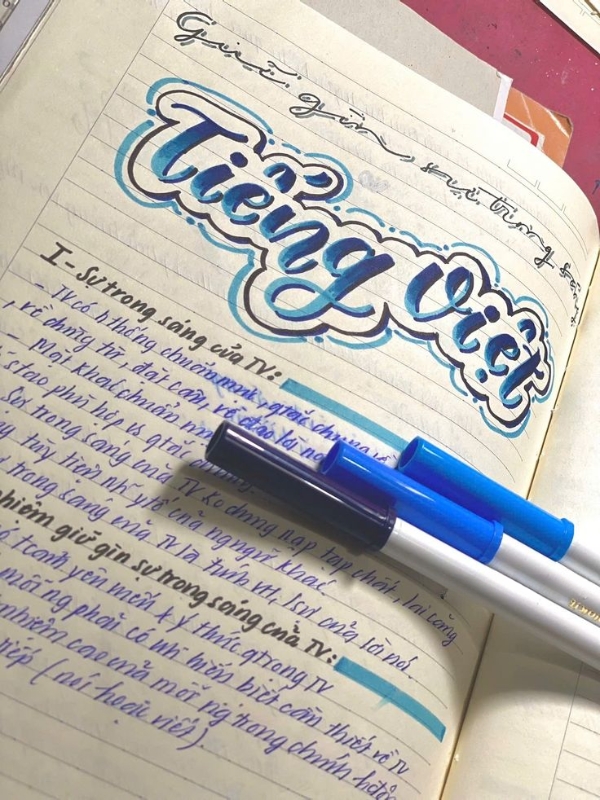 Giữ gìn sự trong sáng
Tiếng Việt
I - Sự trong sáng của TV:
- TV có hthống chuẩn mực, qtắc chung về
, về chữ, từ, đặt câu, về
- Mặt khác chuẩn
stạo phù hợp vs qtắc chung.
Sự trong sáng của TV ko dung nạp tạp chất, lai căng
tùy tiện những ytố của ngngữ khác
trong sáng của TV là tính vh, lsự của lời nói.
nhiệm giữ gìn sự trong sáng của TV:
có tcảm yêu mến & ý thức qtrọng TV
mỗi ng phải có những hiểu biết cần thiết về TV
nhiệm cao của mỗi ng trong chính hđộng
tiếp (nói hoặc viết).